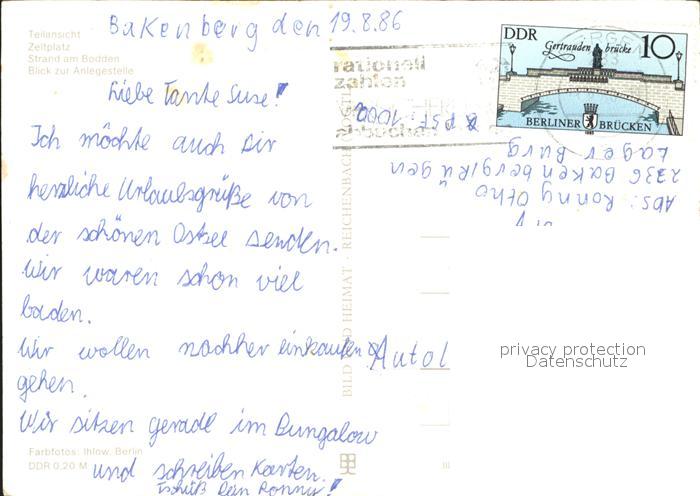 Teilansicht
Zeltplatz
Strand am Bodden
Blick zur Anlegestelle
Bakenberg den 19.8.86
Liebe Tante Suse!
Ich möchte auch Dir
herzliche Urlaubsgrüße von
der schönen Ostsee senden.
Wir waren schon viel
baden.
Wir wollen nachher einkaufen
gehen.
Wir sitzen gerade im Bungalow
und schreiben Karten.
Tschüß Dein Ronny!
Farbfotos: Ihlow, Berlin
DDR 0,20 M
BILD UND HEIMAT · REICHENBACH
III
rationell
zahlen
DDR
Gertraudenbrücke
10
BERLINER BRÜCKEN
Abs: Ronny Otho
2336 Bakenberg/Rügen
Lager Burg
PSF: 1000
privacy protection
Datenschutz